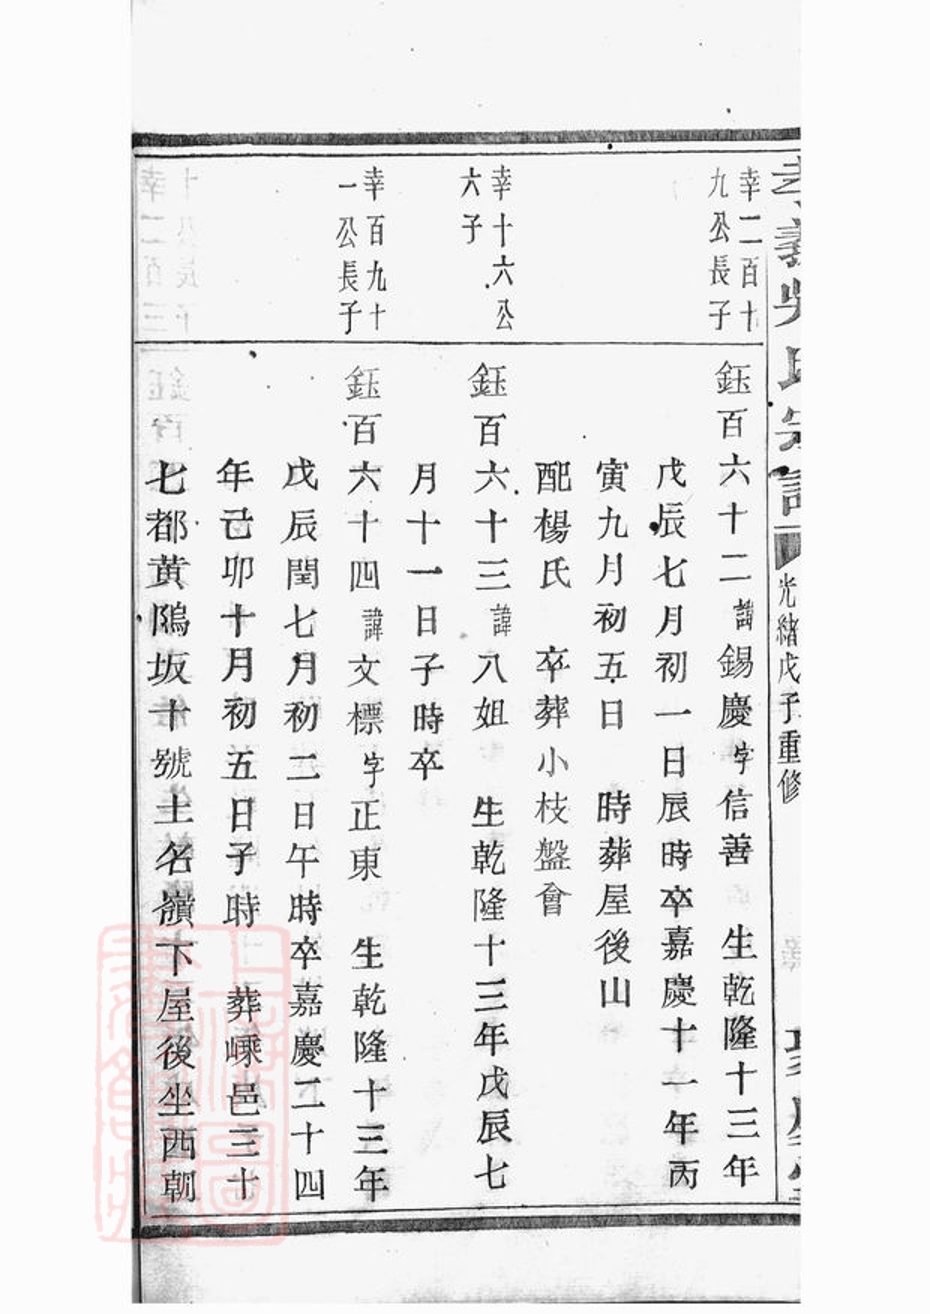 孝義吳氏宗譜
光緒戊子重修
幸二百十
九公長子
鈺百六十二諱錫慶字信善 生乾隆十三年
戊辰七月初一日辰時卒嘉慶十一年丙
寅九月初五日 時葬屋後山
配楊氏 卒葬小枝盤會
幸十六公
六子
鈺百六十三諱八姐 生乾隆十三年戊辰七
月十一日子時卒
幸百九十
一公長子
鈺百六十四諱文標字正東 生乾隆十三年
戊辰閏七月初二日午時卒嘉慶二十四
年己卯十月初五日子時 葬嵊邑三十
七都黃隖坂十號土名嶺下屋後坐西朝